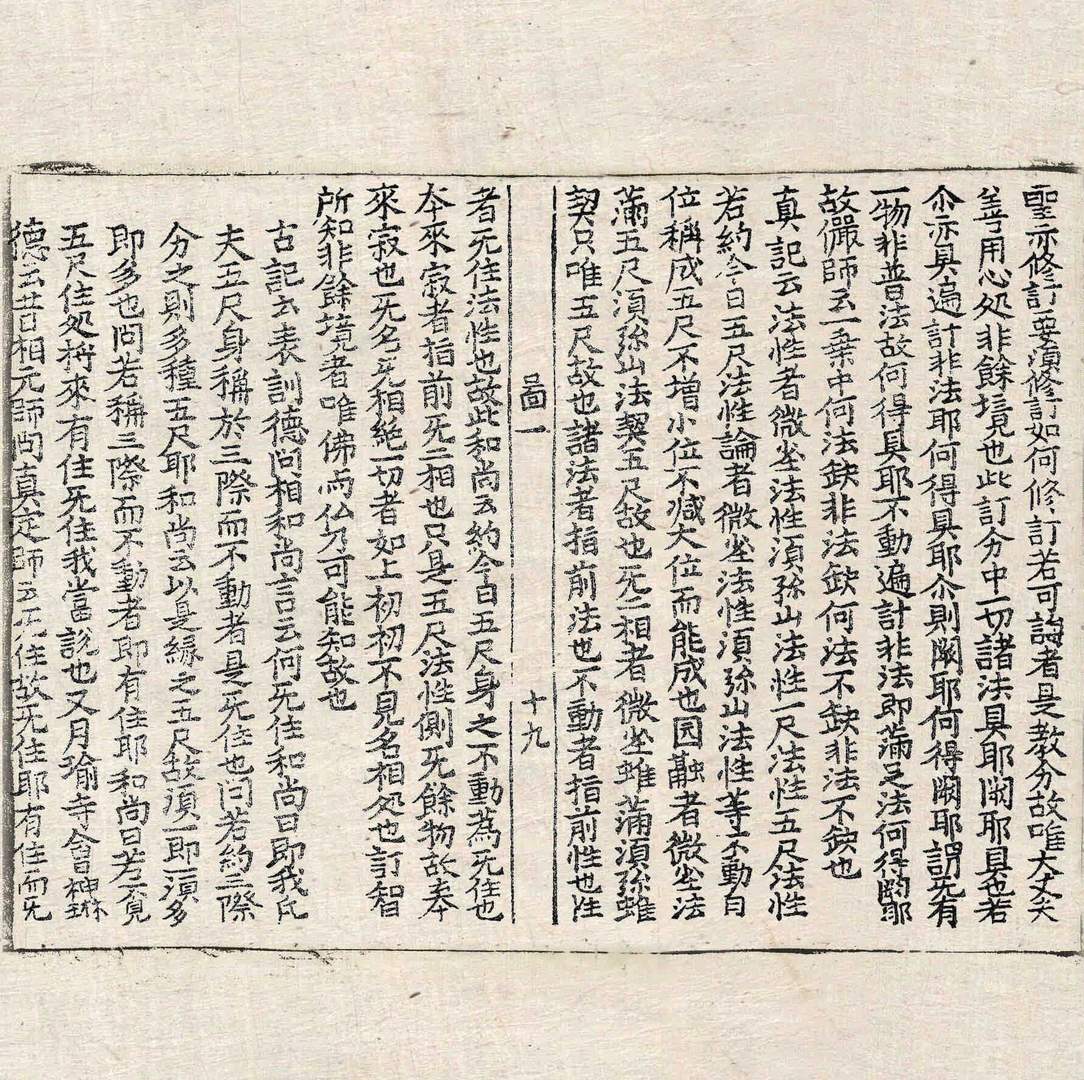 聖亦修訂要須修訂如何修訂若可論者是教分故唯大丈夫
善用心処非餘境也此訂分中一切諸法具耶闕耶具也若
尒亦具遍計非法耶何得具耶尒則闕耶何得闕耶謂无有
一物非普法故何得具耶不動遍計非法即滿足法何得闕耶
故儼師云一乗中何法缺非法缺何法不缺非法不缺也
真記云法性者微塵法性須弥山法性一尺法性五尺法性
若約今日五尺法性論者微塵法性須弥山法性等不動自
位稱成五尺不增小位不减大位而能成也圎融者微塵法
滿五尺須弥山法契五尺故也无二相者微塵雖滿須弥雖
契只唯五尺故也諸法者指前法也不動者指前性也性
啚一 十九
者无住法性也故此和尚云約今日五尺身之不動為无住也
夲來寂者指前无二相也只是五尺法性側无餘物故夲
來寂也无名无相絶一切者如上初初不見名相処也訂智
所知非餘境者唯佛與仏乃可能知故也
古記云表訓德問相和尚言云何无住和尚曰即我凡
夫五尺身稱於三際而不動者是无住也問若約三際
分之則多種五尺耶和尚云以是縁之五尺故須一即一須多
即多也問若稱三際而不動者即有住耶和尚曰若不覓
五尺住処将來有住无住我當說也又月瑜寺會神琳
德云昔日相元師問真定師云无住故无住耶有住而无